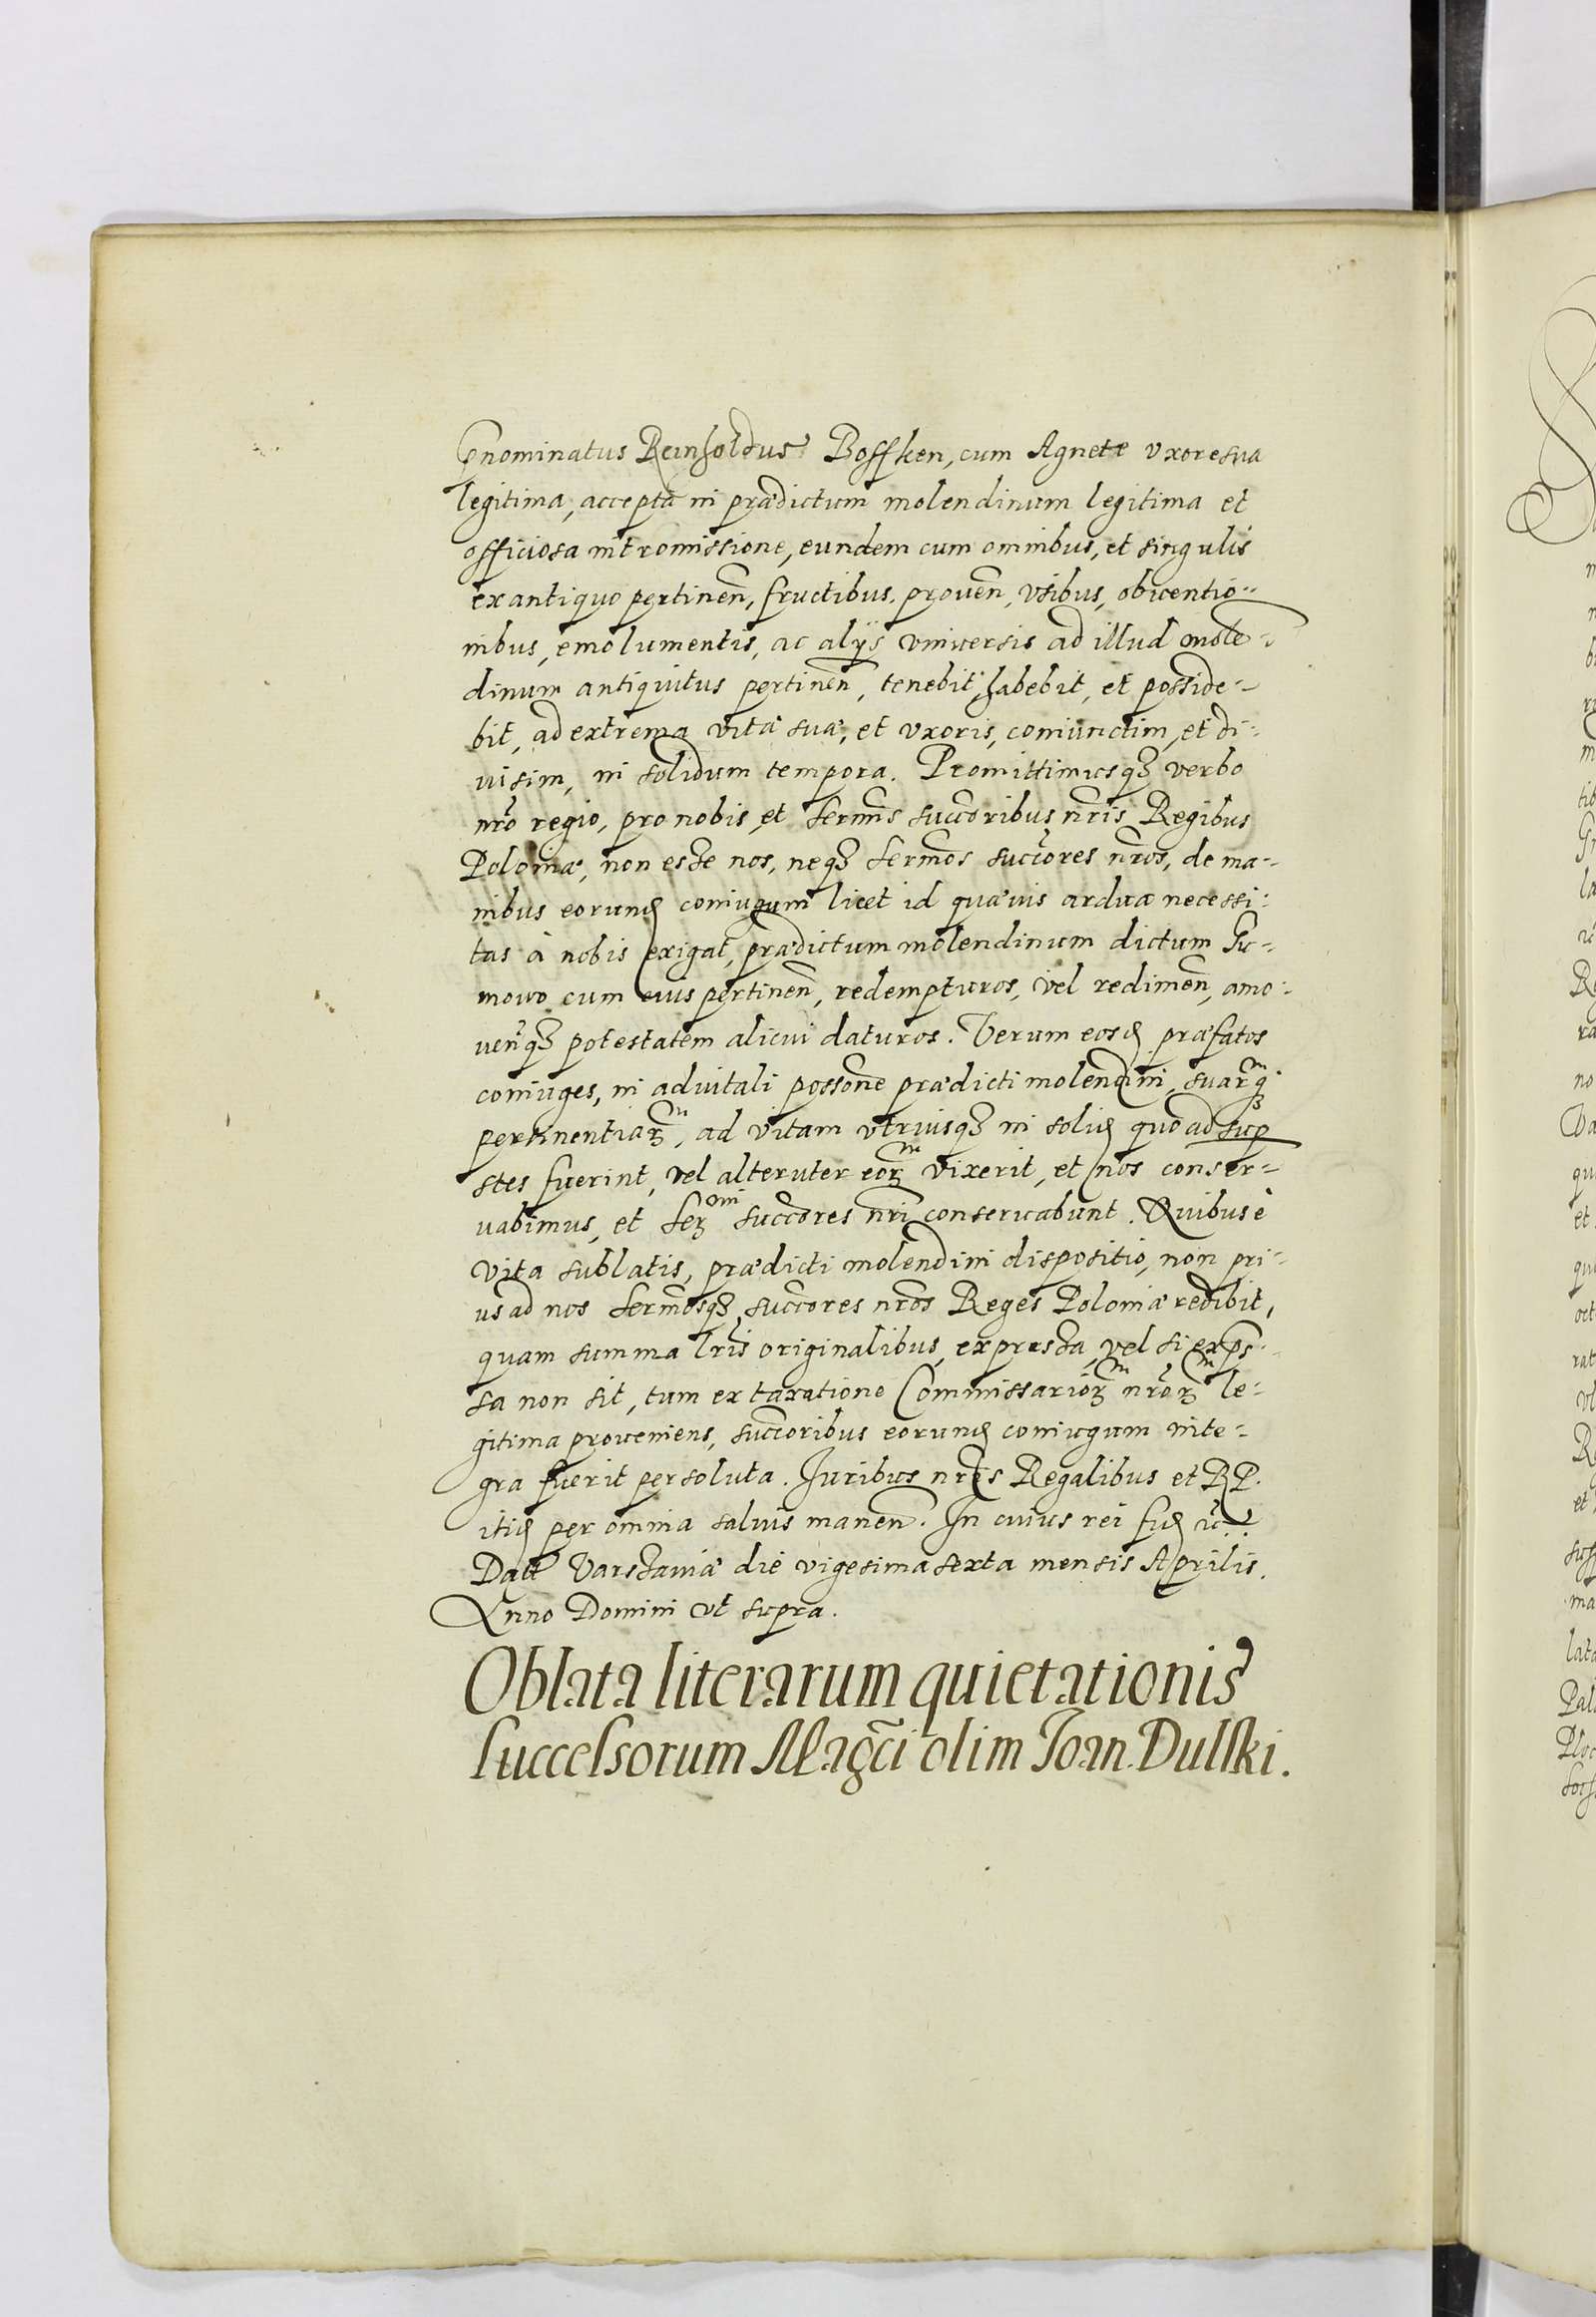 Pnominatus Reinholdus Boffken, cum Agnete vxore sua
legitima, accepta in prædictum molendinum legitima et
officiosa intromissione, eundem cum omnibus, et singulis
ex antiquo pertinen̄, fructibus, prouen̄, vsibus, obuentio-
nibus, emolumentis, ac alijs vniuersis ad illud mole-
dinum antiquitus pertinen̄, tenebit, habebit, et posside-
bit, ad extrema vitæ suæ, et vxoris, coniunctim, et di-
uisim, in solidum tempora. Promittimusqꝫ verbo
nr̄o regio, pro nobis, et Sermīs succōribus nr̄is Regibus
Poloniæ, non esse nos, neqꝫ Sermōs succōres nr̄os, de ma-
nibus eorund coniugum licet id quæuis ardua necessi-
tas à nobis exigat, prædictum molendinum dictum
mouo cum eius pertinen̄, redempturos, vel redimen̄, amo-
uen̄qꝫ potestatem alicui daturos. Verum eosd præfatos
coniuges, in aduitali possōne prædicti molendini, suarꝫm̄qꝫ
pertinentiarꝫm, ad vitam vtriusqꝫ in solid quoad sup
stes fuerint, vel alteruter eorꝫm vixerit, et nos conser-
uabimus, et Serꝫmi succōres nr̄i conseruabunt. Quibus è
vita sublatis, prædicti molendini dispositio, non pri-
us ad nos Sermōsqꝫ succōres nr̄os Reges Poloniæ redibit,
quam summa lr̄is originalibus, expressa, vel si exp̄s-
sa non sit, tum ex taxatione Commissariorꝫm nr̄orꝫm le-
gitima proueniens, succōribus eorund coniugum inte-
gra fuerit persoluta. Iuribus nr̄is Regalibus et RP.
itid per omnia saluis manen̄. In cuius rei fid ꝛc̄.
Datt Varsaviæ die vigesima sexta mensis Aprilis.
Anno Domini vt supra.
Oblata literarum quietationis
successorum Mag̃ci olim Ioan. Dulski.